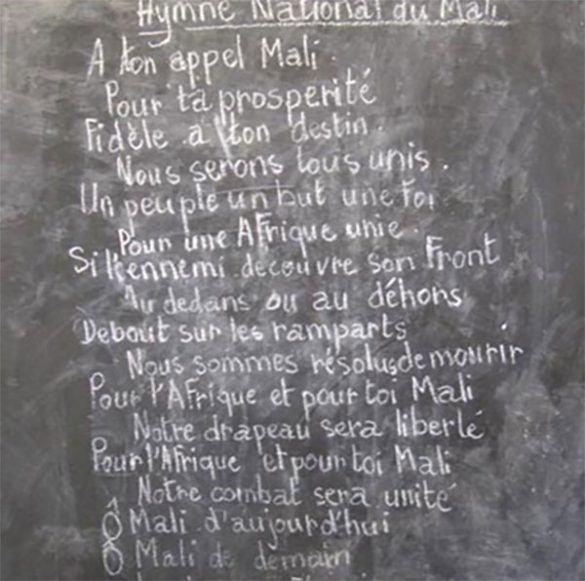 Hymne National du Mali
A ton appel Mali.
Pour ta prosperité
Fidèle à ton destin.
Nous serons tous unis.
Un peuple un but une foi
Pour une Afrique unie.
Si l'ennemi découvre son Front
Au dedans ou au déhors
Debout sur les ramparts
Nous sommes résolus de mourir
Pour l'Afrique et pour toi Mali
Notre drapeau sera liberté
Pour l'Afrique et pour toi Mali
Notre combat sera unité
Ô Mali d'aujourd'hui
Ô Mali de demain